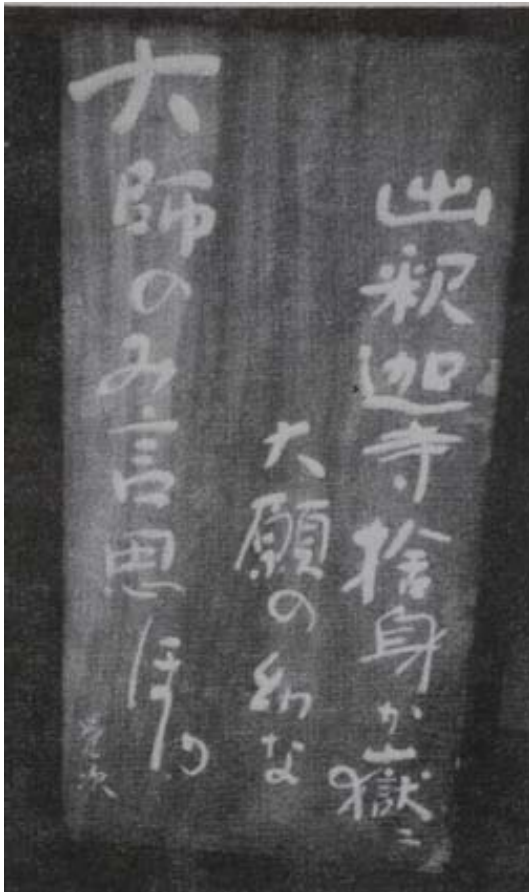 出釈迦寺捨身か嶽ニ
大願の幼な
大師のみ言思ほゆ